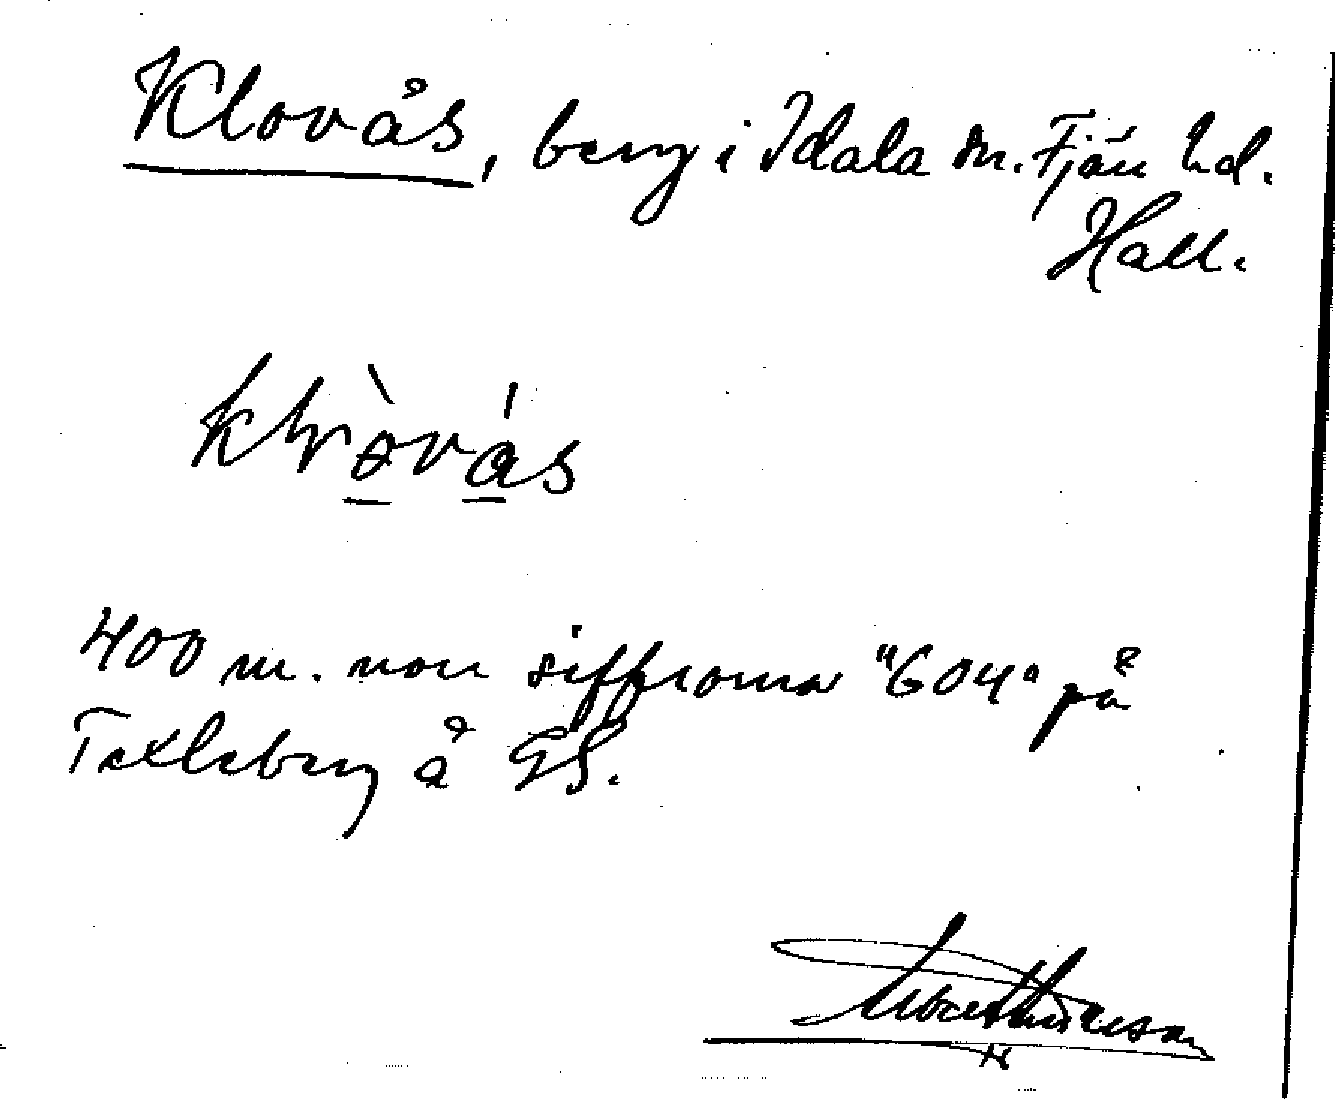 Klovås, berg i Idala sn. Fjär hd.
Hall.
400 m. norr siffrorna "604" på
Taxleberg å GS.